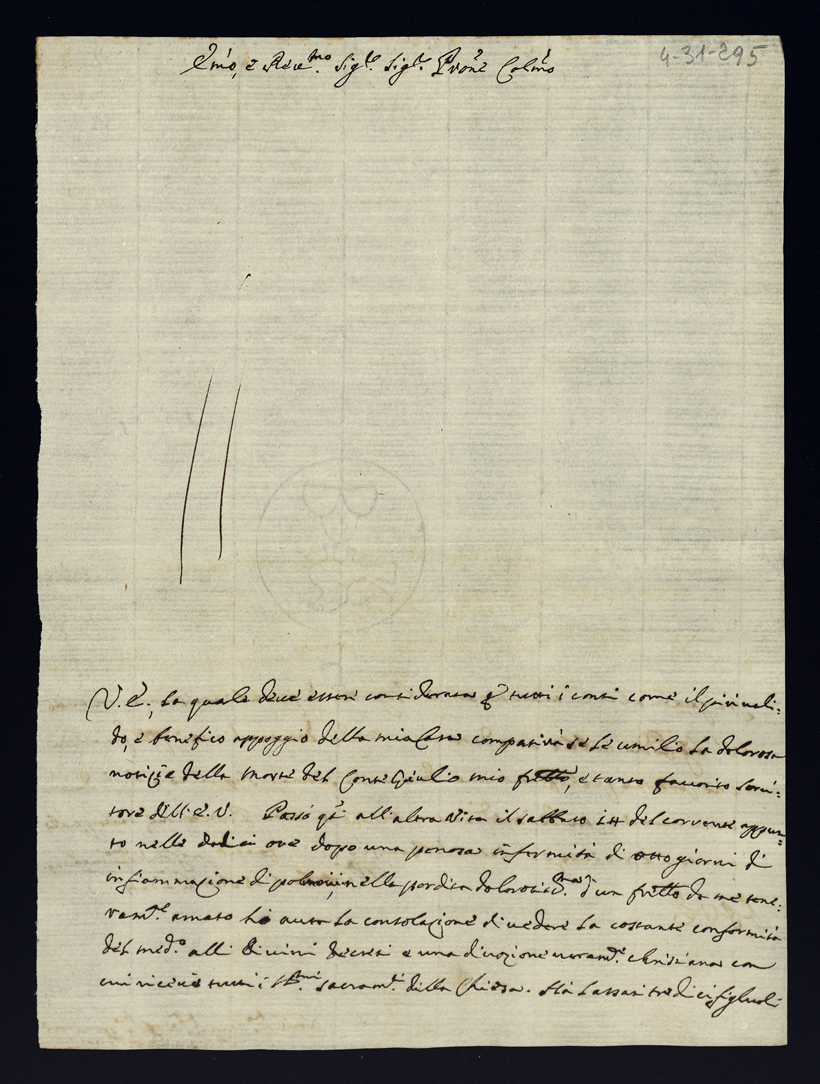 4-31-295
Emo, e Reu.mo Sig.re Sig.re Prone Colmo
V. E., la quale deue essere considerata p tutti i conti come il piu uali:
do, e benefico appoggio della mia Casa compatirà se Le umilio la dolorosa
notizia della morte del Conte Giulio mio frello, e tanto fauorito serui:
tore dell'E. V. Passò qti all'altra uita il sabbato 14 del corrente appun=
to nelle dodici ore dopo una penosa infermità di otto giorni di
infiammazione di polmoni, nella perdita dolorosis.ma d'un frello da me tene:
ram.te amato hò auta la consolazione di uedere la costante conformità
del med.o alli Diuini Decreti e una diuozione ueram.te christiana con
cui riceuè tutti i SS.mi sacram.ti della Chiesa. Hà lassati tredici figluoli